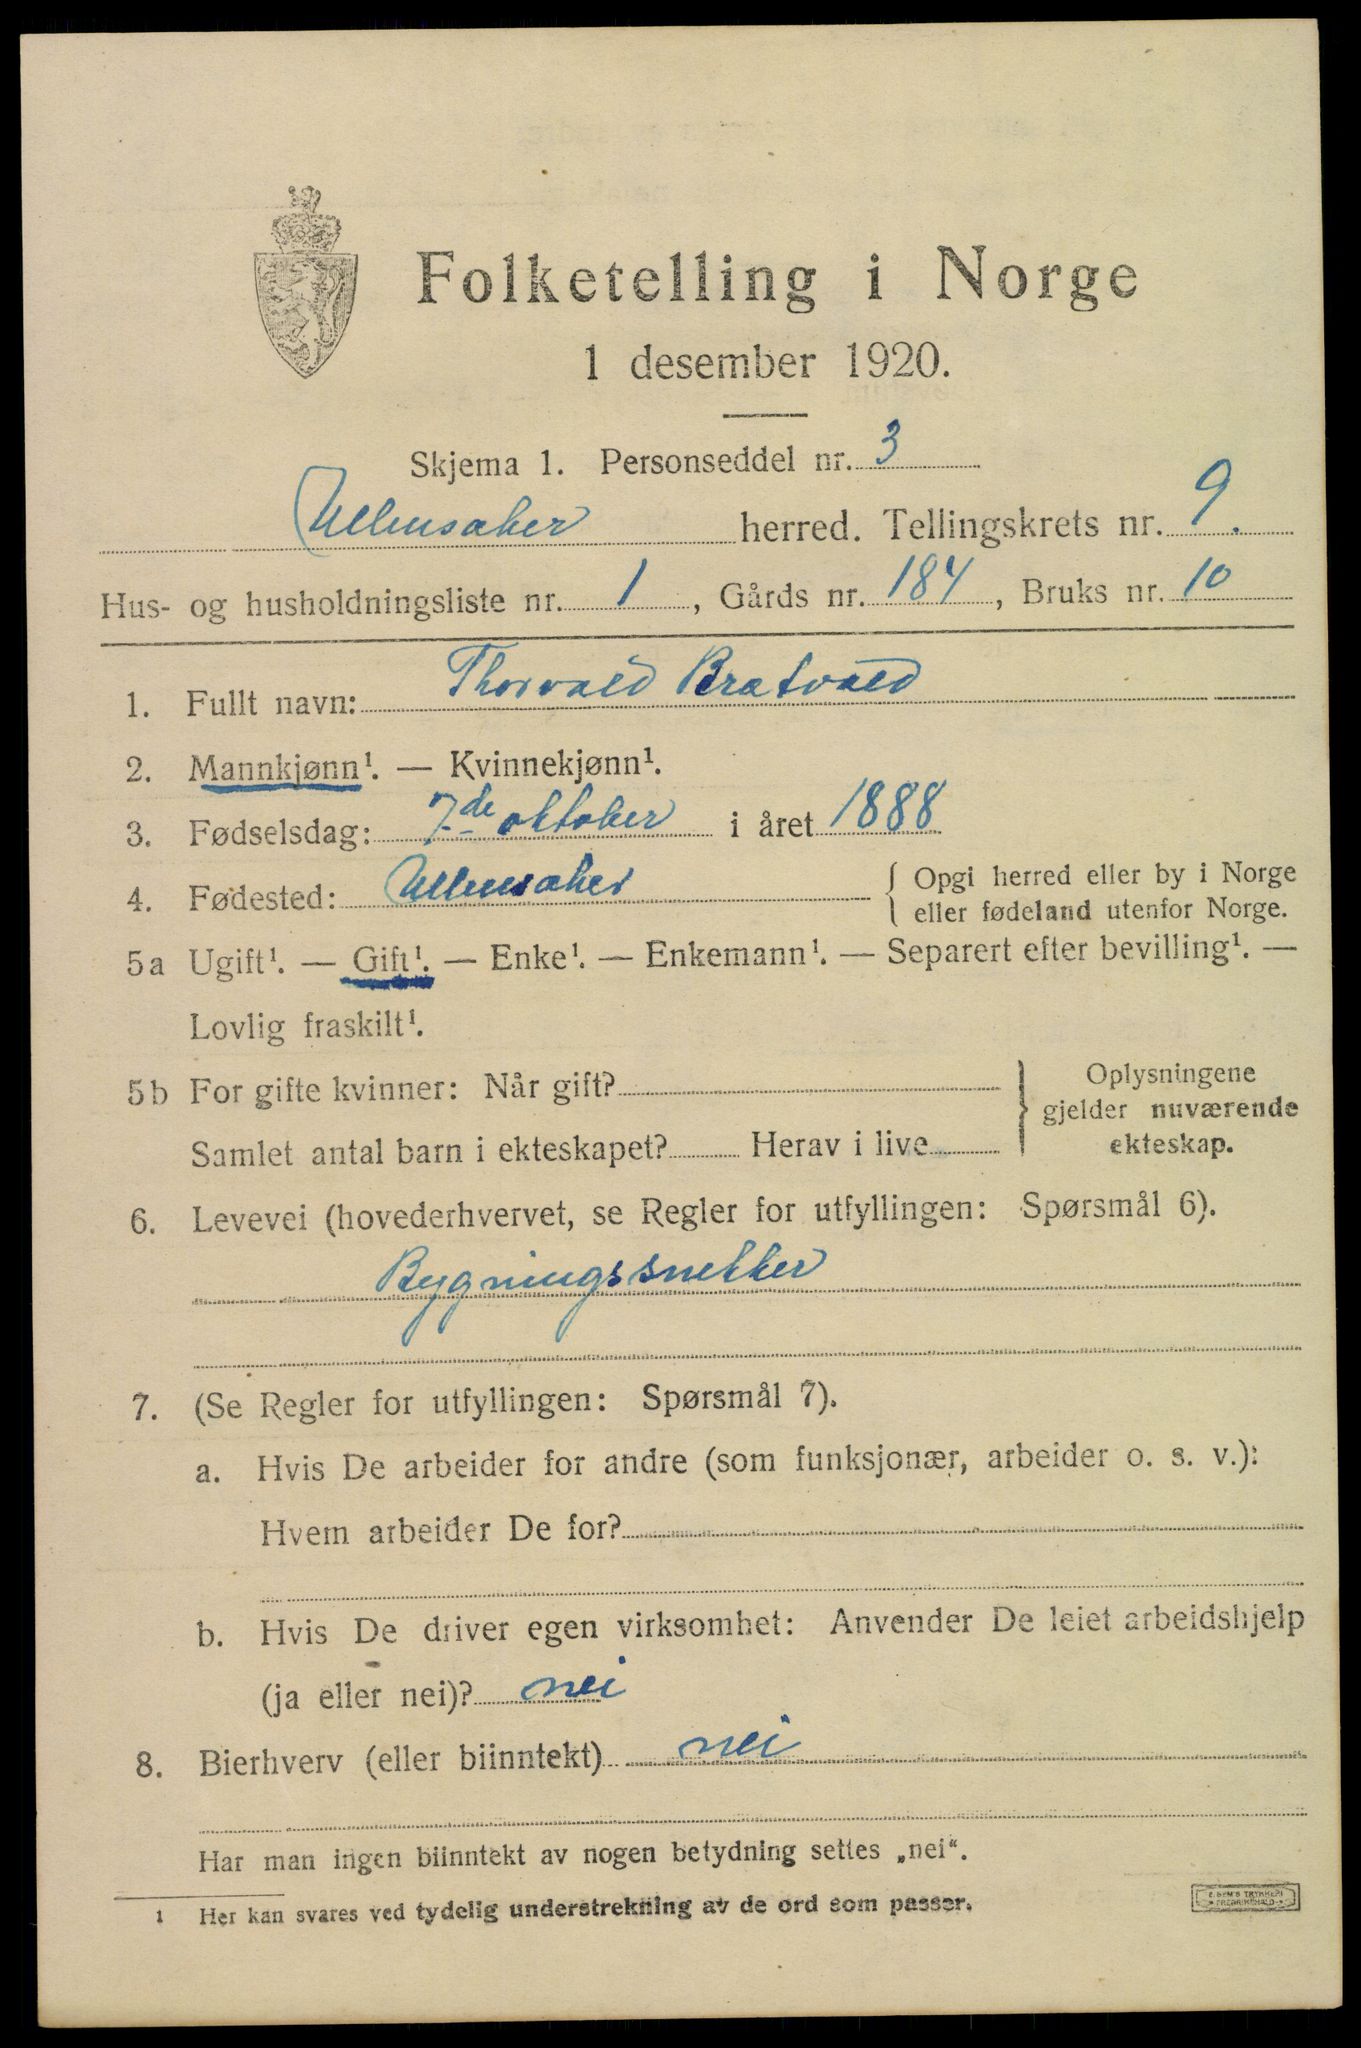 Folketelling i Norge
1 desember 1920.
Skjema 1. Personseddel nr. 3
Ullensaker herred. Tellingskrets nr. 9.
Hus- og husholdningsliste nr. 1, Gårds nr. 184, Bruks nr. 10
1. Fullt navn: Thorvald Bratvold
2. Mannkjønn¹. — Kvinnekjønn¹.
3. Fødselsdag: 7de oktober i året 1888
4. Fødested: Ullensaker { Opgi herred eller by i Norge
eller fødeland utenfor Norge.
5a Ugift¹. — Gift¹. — Enke¹. — Enkemann¹. — Separert efter bevilling¹. —
Lovlig fraskilt¹.
5b For gifte kvinner: Når gift?
Samlet antal barn i ekteskapet? Herav i live
} Oplysningene
gjelder nuværende
ekteskap.
6. Levevei (hovederhvervet, se Regler for utfyllingen: Spørsmål 6).
Bygningssnekker
7. (Se Regler for utfyllingen: Spørsmål 7).
a. Hvis De arbeider for andre (som funksjonær, arbeider o. s. v.):
Hvem arbeider De for?
b. Hvis De driver egen virksomhet: Anvender De leiet arbeidshjelp
(ja eller nei)? nei
8. Bierhverv (eller biinntekt) nei
Har man ingen biinntekt av nogen betydning settes „nei“.
1 Her kan svares ved tydelig understrekning av de ord som passer.
E. SEM'S TRYKKERI
FREDRIKSHALD